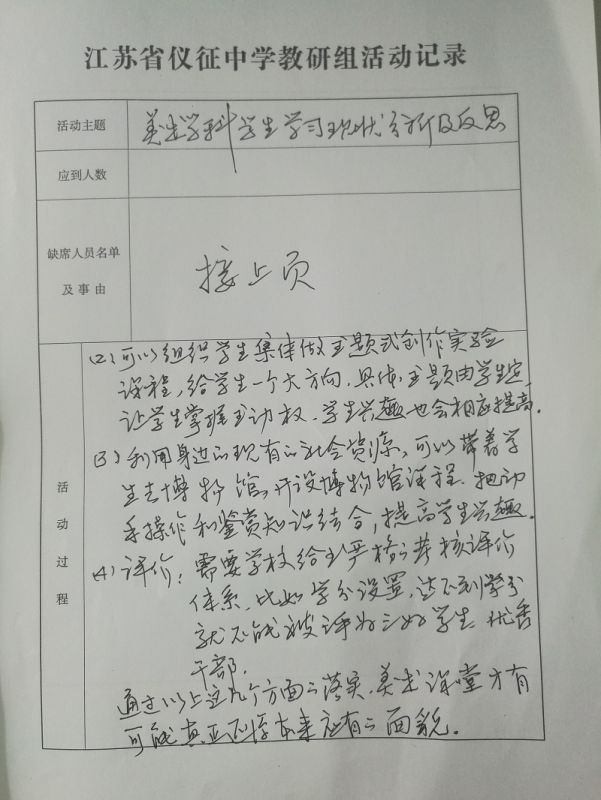 江苏省仪征中学教研组活动记录
活动主题
美术学科学生学习现状分析及反思
应到人数
缺席人员名单
及事由
接上页
活动过程
(2) 可以组织学生集体做主题式创作实验
课程，给学生一个大方向，具体主题由学生定
让学生掌握主动权，学生兴趣也会相应提高。
(3) 利用身边的现有的社会资源，可以带着学
生去博物馆，开设博物馆课程，把动
手操作和鉴赏知识结合，提高学生兴趣。
(4) 评价：需要学校给出严格的考核评价
体系，比如学分设置，达不到学分
就不能被评为三好学生、优秀
干部。
通过以上这几个方面的落实，美术课堂才有
可能真正还原本来应有的面貌。